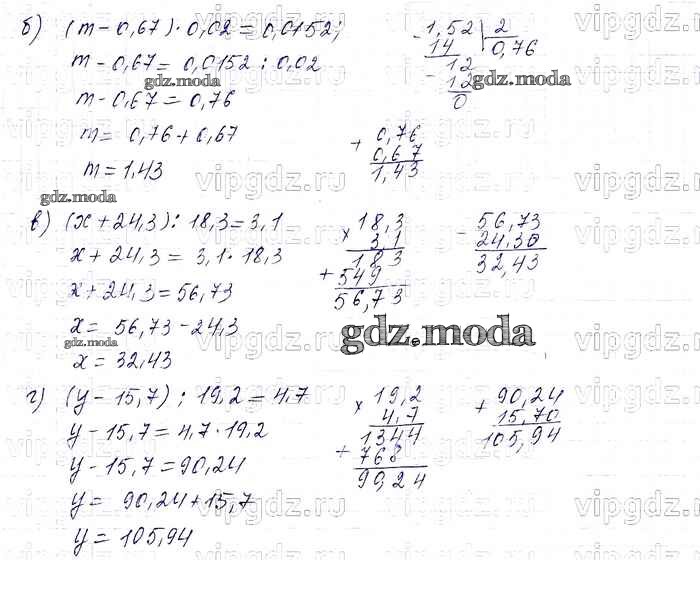 б) (m - 0,67) · 0,02 = 0,0152;
m - 0,67 = 0,0152 : 0,02
m - 0,67 = 0,76
m = 0,76 + 0,67
m = 1,43
- 1,52 | 2
14 0,76
12
- 12
0
+ 0,76
0,67
1,43
в) (x + 24,3) : 18,3 = 3,1
x + 24,3 = 3,1 · 18,3
x + 24,3 = 56,73
x = 56,73 - 24,3
x = 32,43
× 18,3
3,1
183
+ 549
56,73
- 56,73
24,30
32,43
г) (y - 15,7) : 19,2 = 4,7
y - 15,7 = 4,7 · 19,2
y - 15,7 = 90,24
y = 90,24 + 15,7
y = 105,94
× 19,2
4,7
1344
+ 768
90,24
+ 90,24
15,70
105,94
gdz.moda
gdz.moda
gdz.moda
gdz.moda
gdz.moda
vipgdz.ru